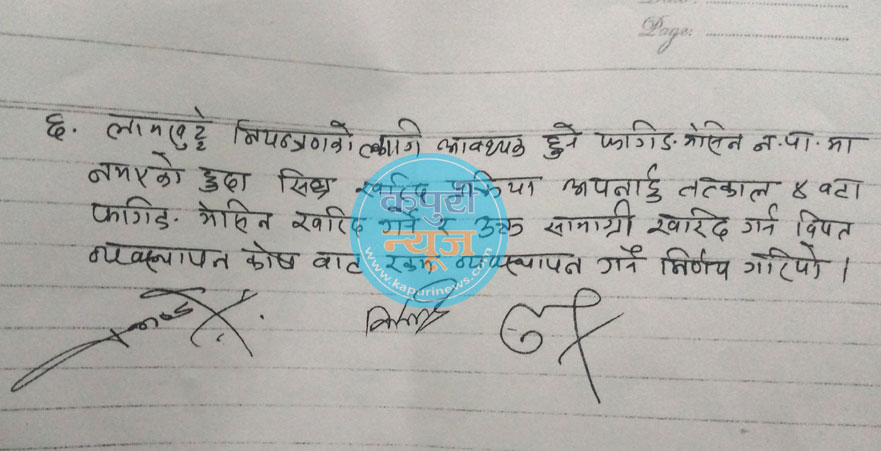 Page:
६. लामखुट्टे नियन्त्रणको लागि आवश्यक हुने फागिङ मेसिन न.पा.मा
नभएको हुदा सिघ्र खरिद प्रक्रिया अपनाई तत्काल ४ वटा
फागिङ मेसिन खरिद गर्ने र उक्त सामाग्री खरिद गर्न विपत
व्यवस्थापन कोष बाट रकम व्यवस्थापन गर्ने निर्णय गरियो ।
कपुरी
न्यूज
www.kapurinews.com